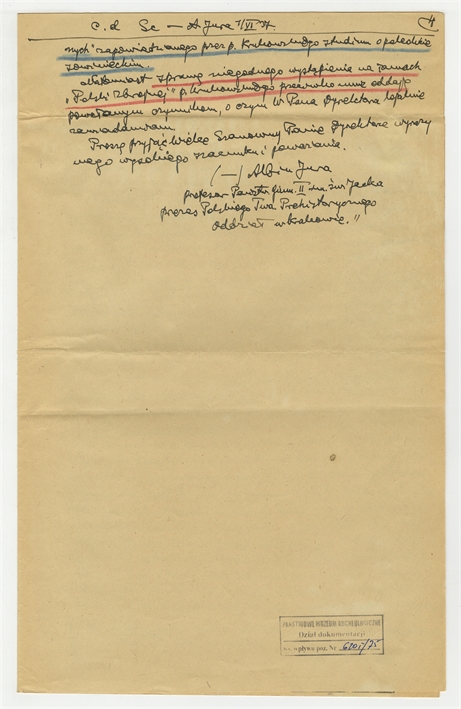 c.d Sc — A Jura 7/VI 37. 4
nych" zapowiedzianego przez p. Krukowskiego studium o paleolicie
jerzmanowickim.
Natomiast sprawę niegodnego wystąpienia na łamach
„Polski Zbrojnej" p. Krukowskiego przeciwko mnie oddaję
powołanym czynnikom, o czym W Pana Dyrektora lojalnie
zawiadamiam.
Proszę przyjąć Wielce Szanowny Panie Dyrektorze wyrazy
mego wysokiego szacunku i poważania.
(—) Albin Jura
profesor Państw. gimn. II św Jacka
prezes Polskiego Twa Prehistorycznego
oddział w Krakowie."
PAŃSTWOWE MUZEUM ARCHEOLOGICZNE
Dział dokumentacji
ks. wpływu poz. Nr 6201/75